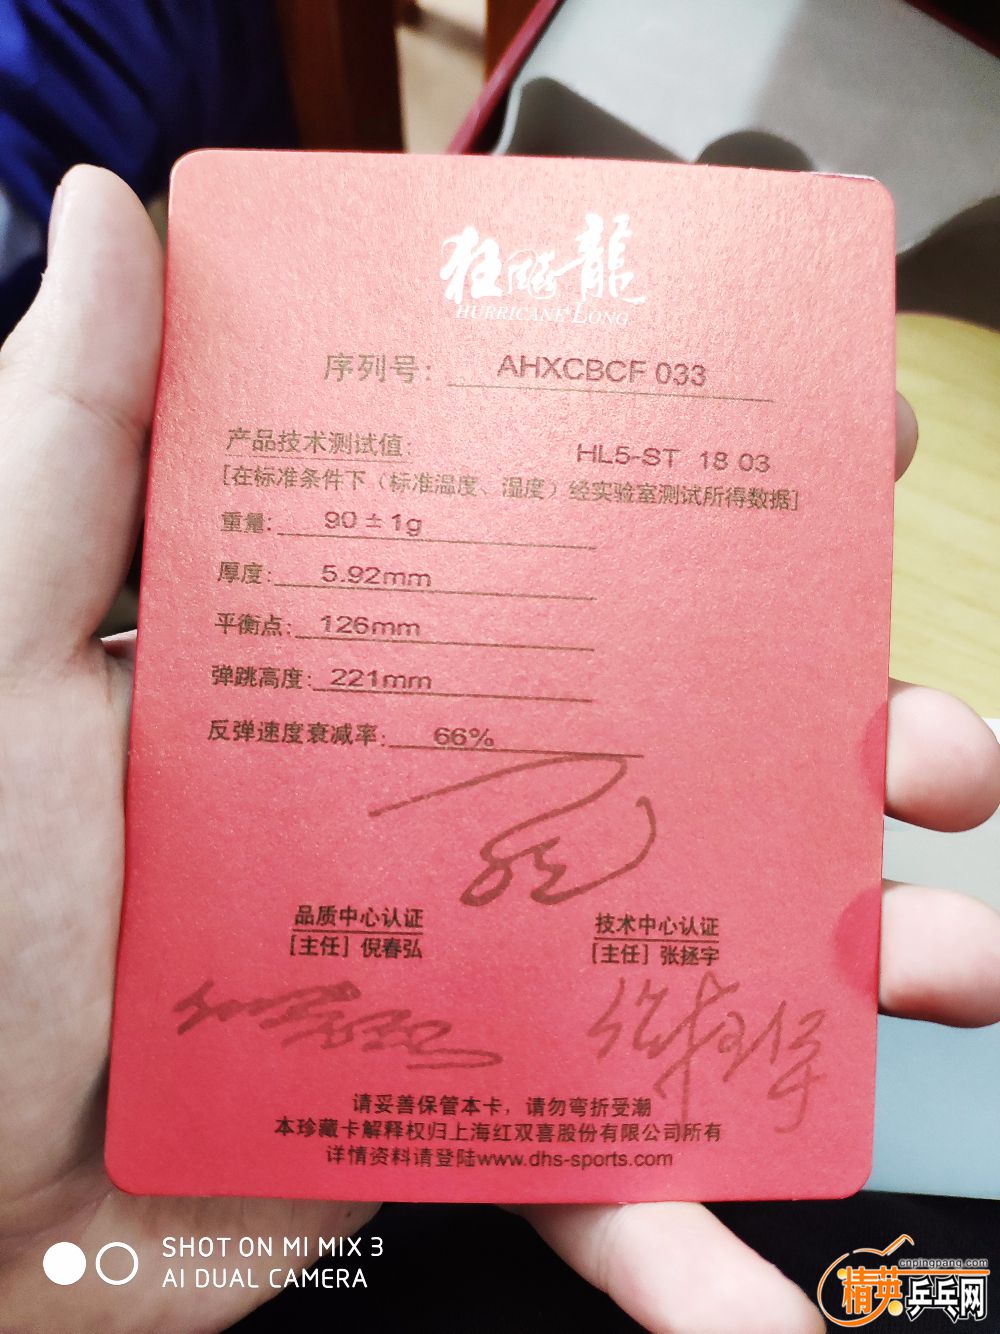 狂飚龍
HURRICANE LONG
序列号: AHXCBCF 033
产品技术测试值: HL5-ST 18 03
[在标准条件下（标准温度、湿度）经实验室测试所得数据]
重量: 90 ± 1g
厚度: 5.92mm
平衡点: 126mm
弹跳高度: 221mm
反弹速度衰减率: 66%
品质中心认证 技术中心认证
[主任] 倪春弘 [主任] 张拯宇
请妥善保管本卡，请勿弯折受潮
本珍藏卡解释权归上海红双喜股份有限公司所有
详情资料请登陆www.dhs-sports.com
SHOT ON MI MIX 3
AI DUAL CAMERA
cnpingpang.com
精英乒乓网